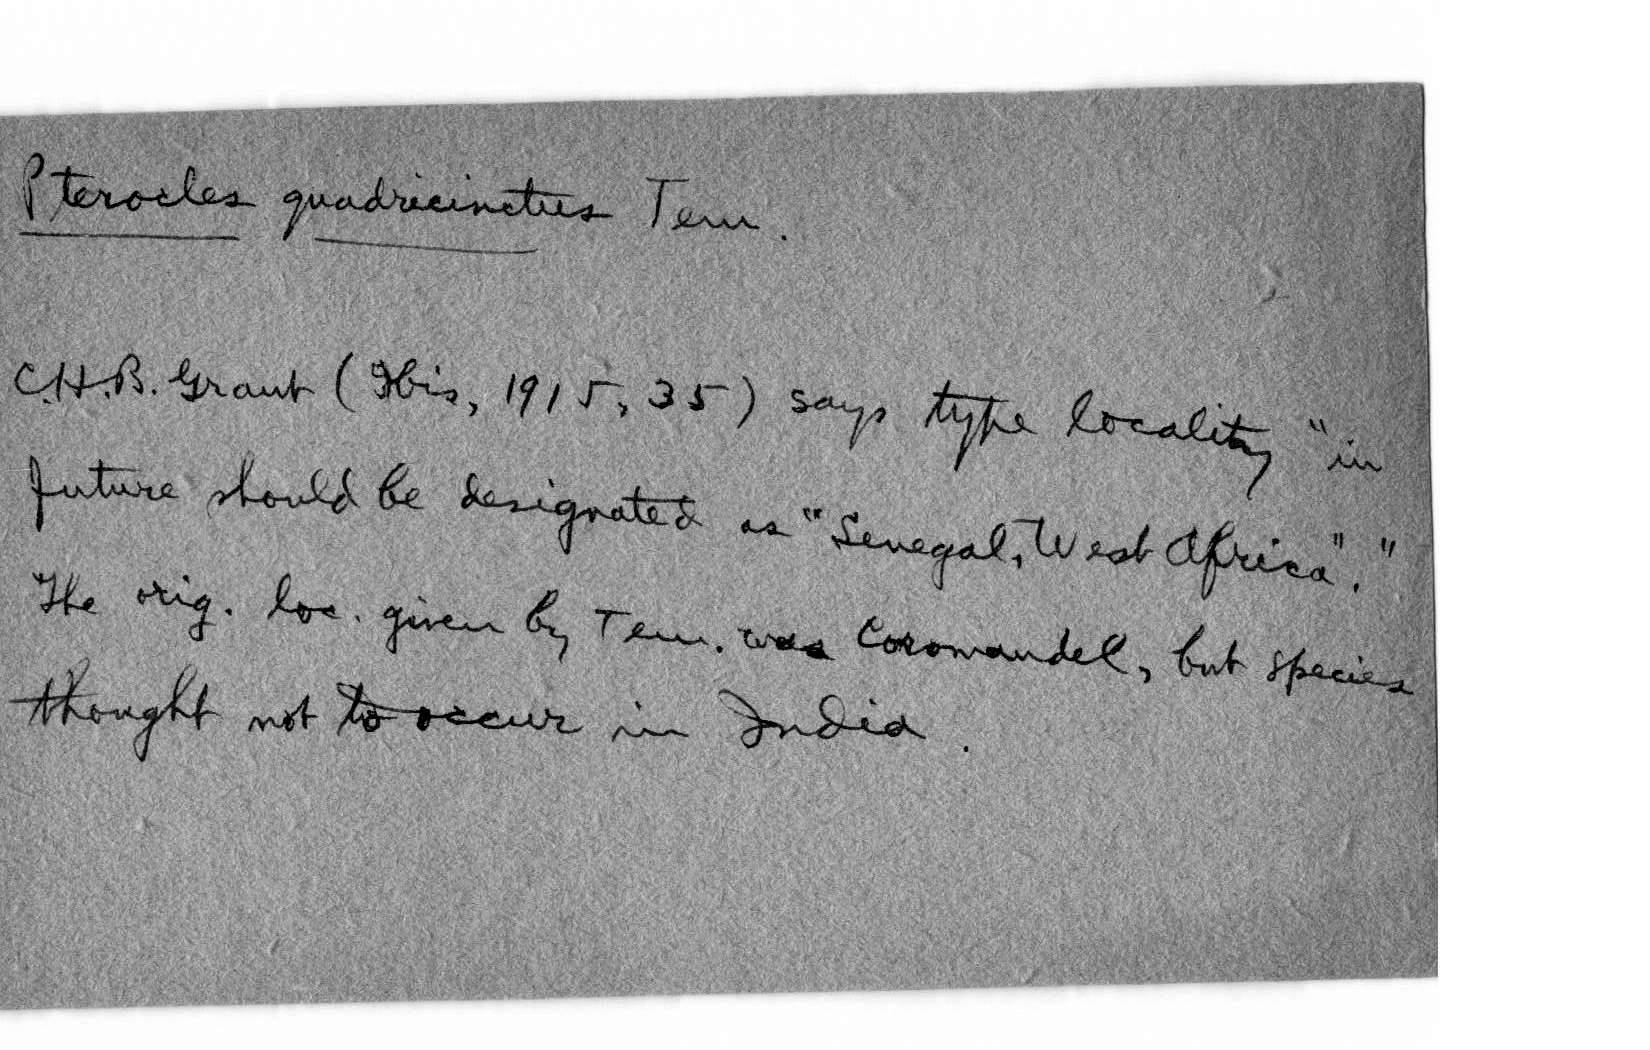 Pterocles quadricinctus Tem.
C.H.B. Grant (Ibis, 1915, 35) says type locality "in
future should be designated as "Senegal, West Africa"."
The orig. loc. given by Tem. was Coromandel, but species
thought not to occur in India.